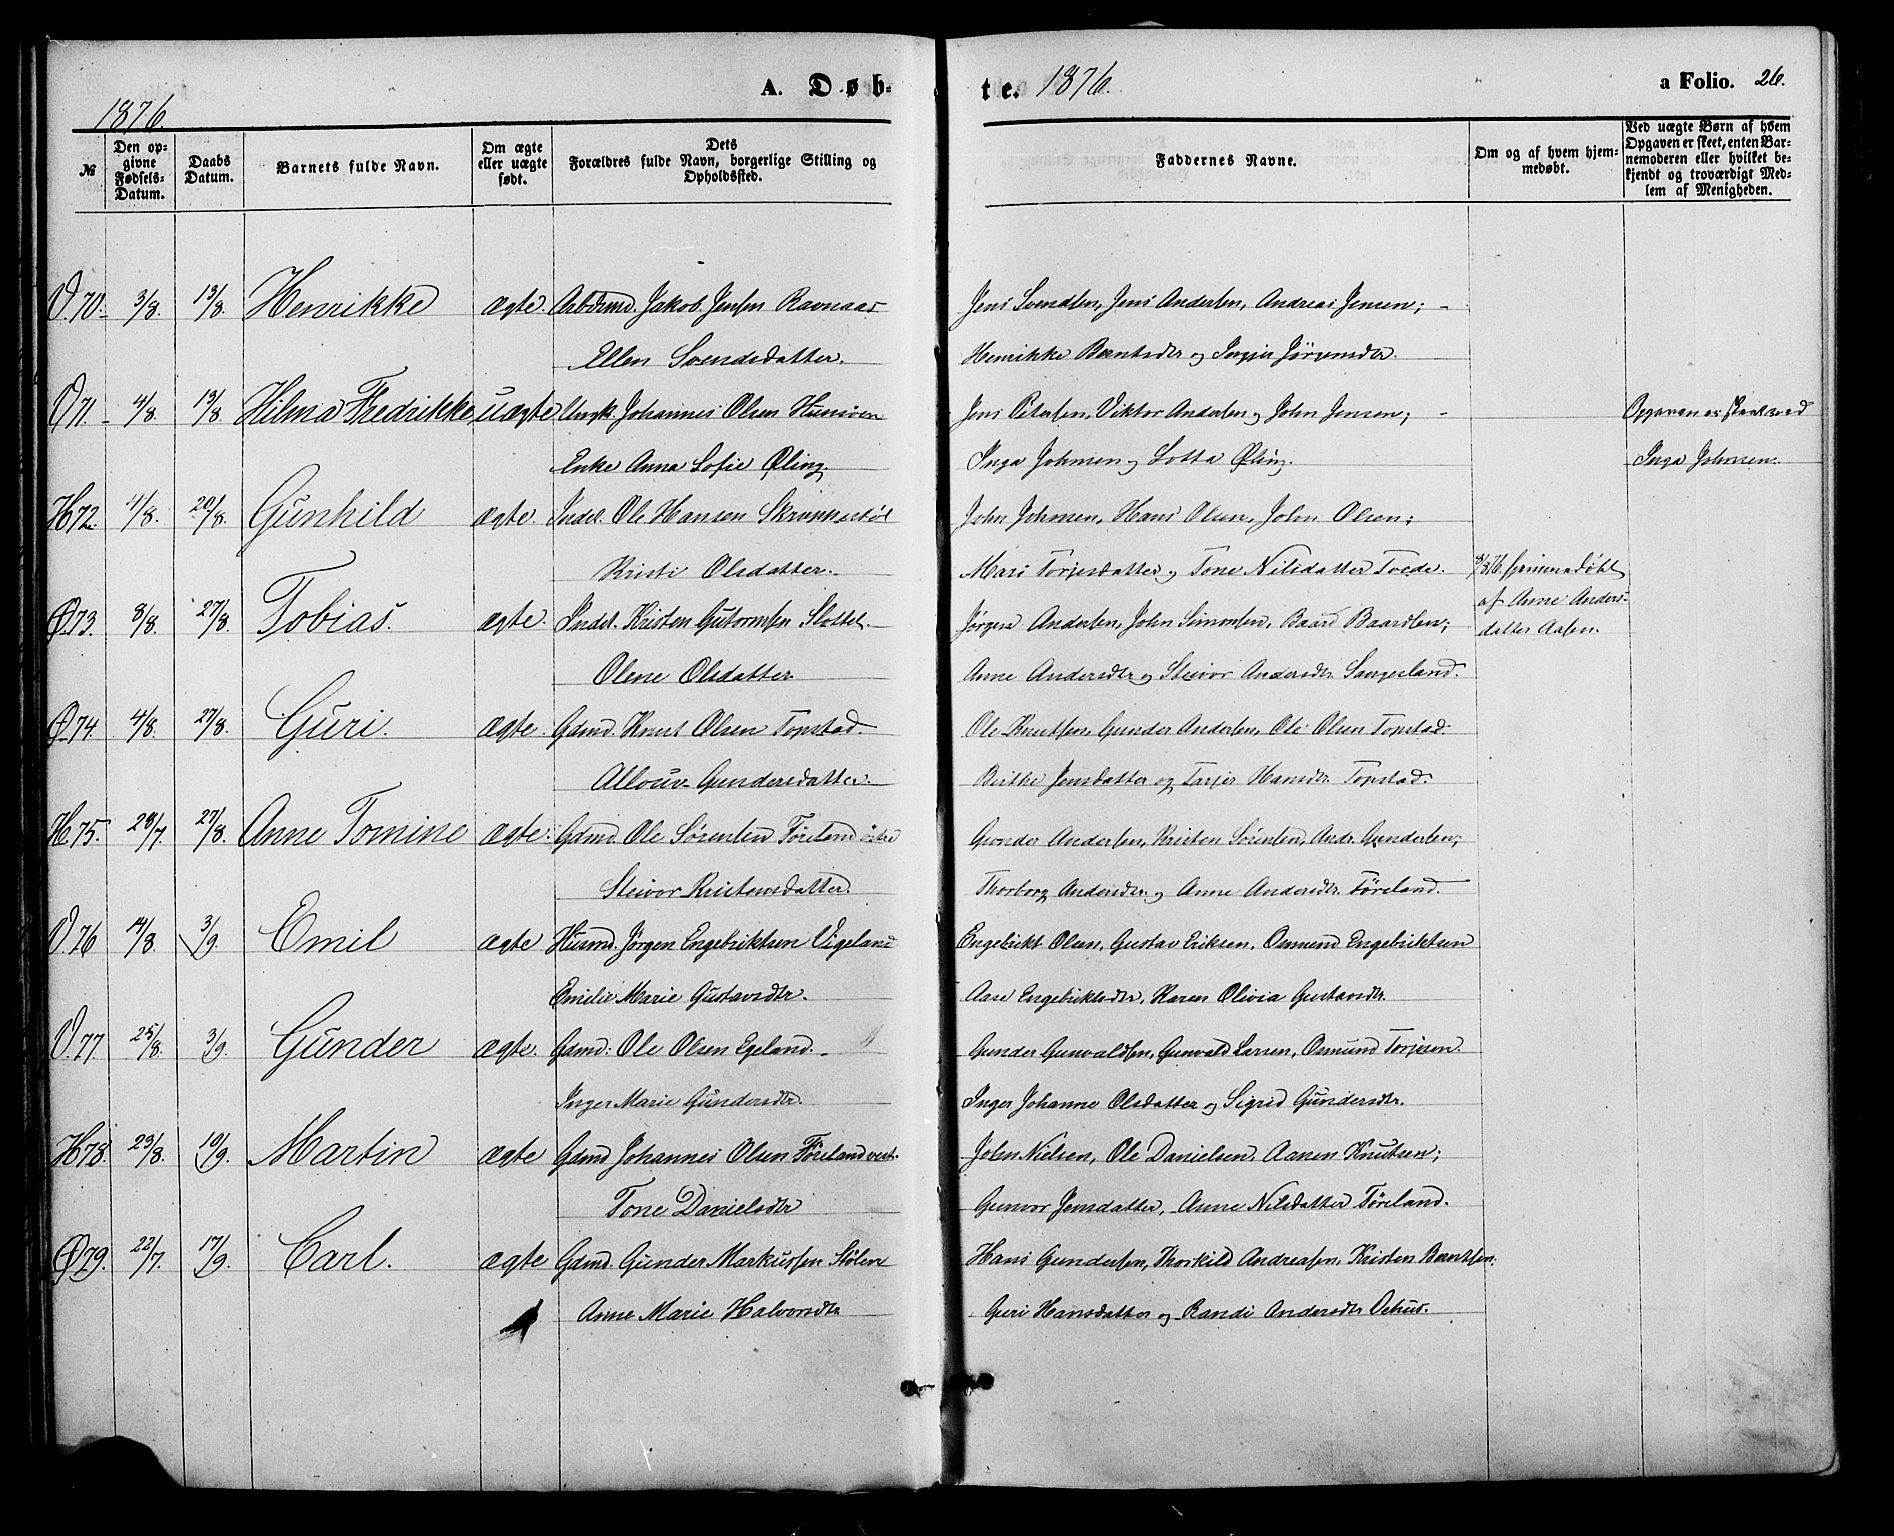 1876.
A. Døb-
te. 1876.
a Folio. 26.
№
Den opgivne Fødsels-Datum.
Daabs Datum.
Barnets fulde Navn.
Om ægte eller uægte født.
Dets Forældres fulde Navn, borgerlige Stilling og Opholdssted.
Faddernes Navne.
Om og af hvem hjemmedøbt.
Ved uægte Børn af hvem Opgaven er skeet, enten Barnemoderen eller hvilket bekjendt og troværdigt Medlem af Menigheden.
V. 70. 3/8. 13/8. Henrikke ægte. Arbdsmd. Jakob Jensen Ravnaas Jens Svendsen, Jens Andersen, Andreas Jensen;
Ellen Svendsdatter. Henrikke Berntsdtr og Inger Jørgensdtr.
V. 71. 4/8. 13/8. Hilma Fredrikke, uægte Ungk. Johannes Olsen Jens Petersen, Viktor Andersen og John Jensen; Opgaven er skeet ved
Enke Anna Sofie Øling. Inga Johnsen og Lotta Øling. Inga Johnsen.
H. 72. 4/8. 20/8. Gunhild ægte. Inderst. Ole Hansen John Johnsen, Hans Olsen, John Olsen;
Kristi Olsdatter. Mari Torjesdatter og Tone Nilsdatter Tvede. hjemmedøbt
Ø. 73. 3/8. 27/8. Tobias. ægte. Inderst. Kristen Gutormsen Slottet. Jørgen Andersen, John Simonsen, Baard Baardsen; af Anne Anders-
datter Aasen.
Olene Olsdatter Anne Andersdtr og Steivor Andersdtr
Ø. 74. 4/8. 27/8. Guri. ægte. Gdmd. Knut Olsen Topstad. Ole Knutsen, Gunder Andersen, Ole Olsen Topstad.
Gundersdatter. Birthe Jensdatter og Tarjer Hansdtr Topstad.
H. 75. 28/7. 27/8. Anne Tomine ægte. Gdmd. Ole Sørensen Føreland østre Gunder Andersen, Kristen Sørensen, Andr. Gundersen;
Steivor Kristensdatter. Thorborg Andersdtr. og Anne Andersdtr. Føreland.
V. 76 14/8. 3/9. Emil ægte Husmd. Jørgen Engebriktsen Vigeland Engebrikt Olsen, Gustav Eriksen, Osmund Engebriktsen
Emilie Marie Gustavsdtr. Aase Engebriktsdtr, Karen Olivia Gustavsdtr.
V. 77 25/8. 3/9. Gunder ægte. Gdmd: Ole Olsen Egeland. Gunder Gunvaldsen, Gunvald Larsen, Osmund Torjesen.
Inger Marie Gundersdtr. Inger Johanne Olsdatter og Sigrid Gundersdtr.
H. 78. 23/8. 10/9. Martin ægte Gdmd Johannes Olsen Føreland vest. John Nielsen, Ole Danielsen, Aanen Knutsen;
Tone Danielsdtr Gunvor Jensdatter, Anne Nilsdatter Føreland.
Ø. 79. 22/7. 17/9. Carl. ægte Gdmd. Gunder Markussen Stølen Hans Gundersen, Thorkild Andreasen, Kristen Berntsen.
Anne Marie Halvorsdtr Guri Hansdatter og Randi Andersdtr Vehus.